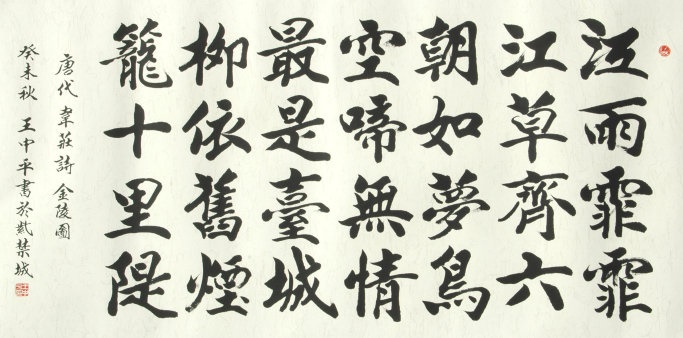 江雨霏霏
江草齊六
朝如夢鳥
空啼無情
最是臺城
柳依舊煙
籠十里隄
唐代 韋莊詩 金陵圖
癸未秋 王中平書於紫禁城